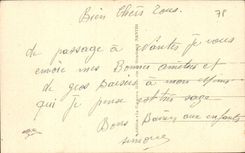 Bien Chers Tous. 78
de passage à Nantes je vous
envoie mes Bonnes amitiés et
de gros Baisers à mon
qui je pense est très sage
Bons Baisers aux enfants
Simone